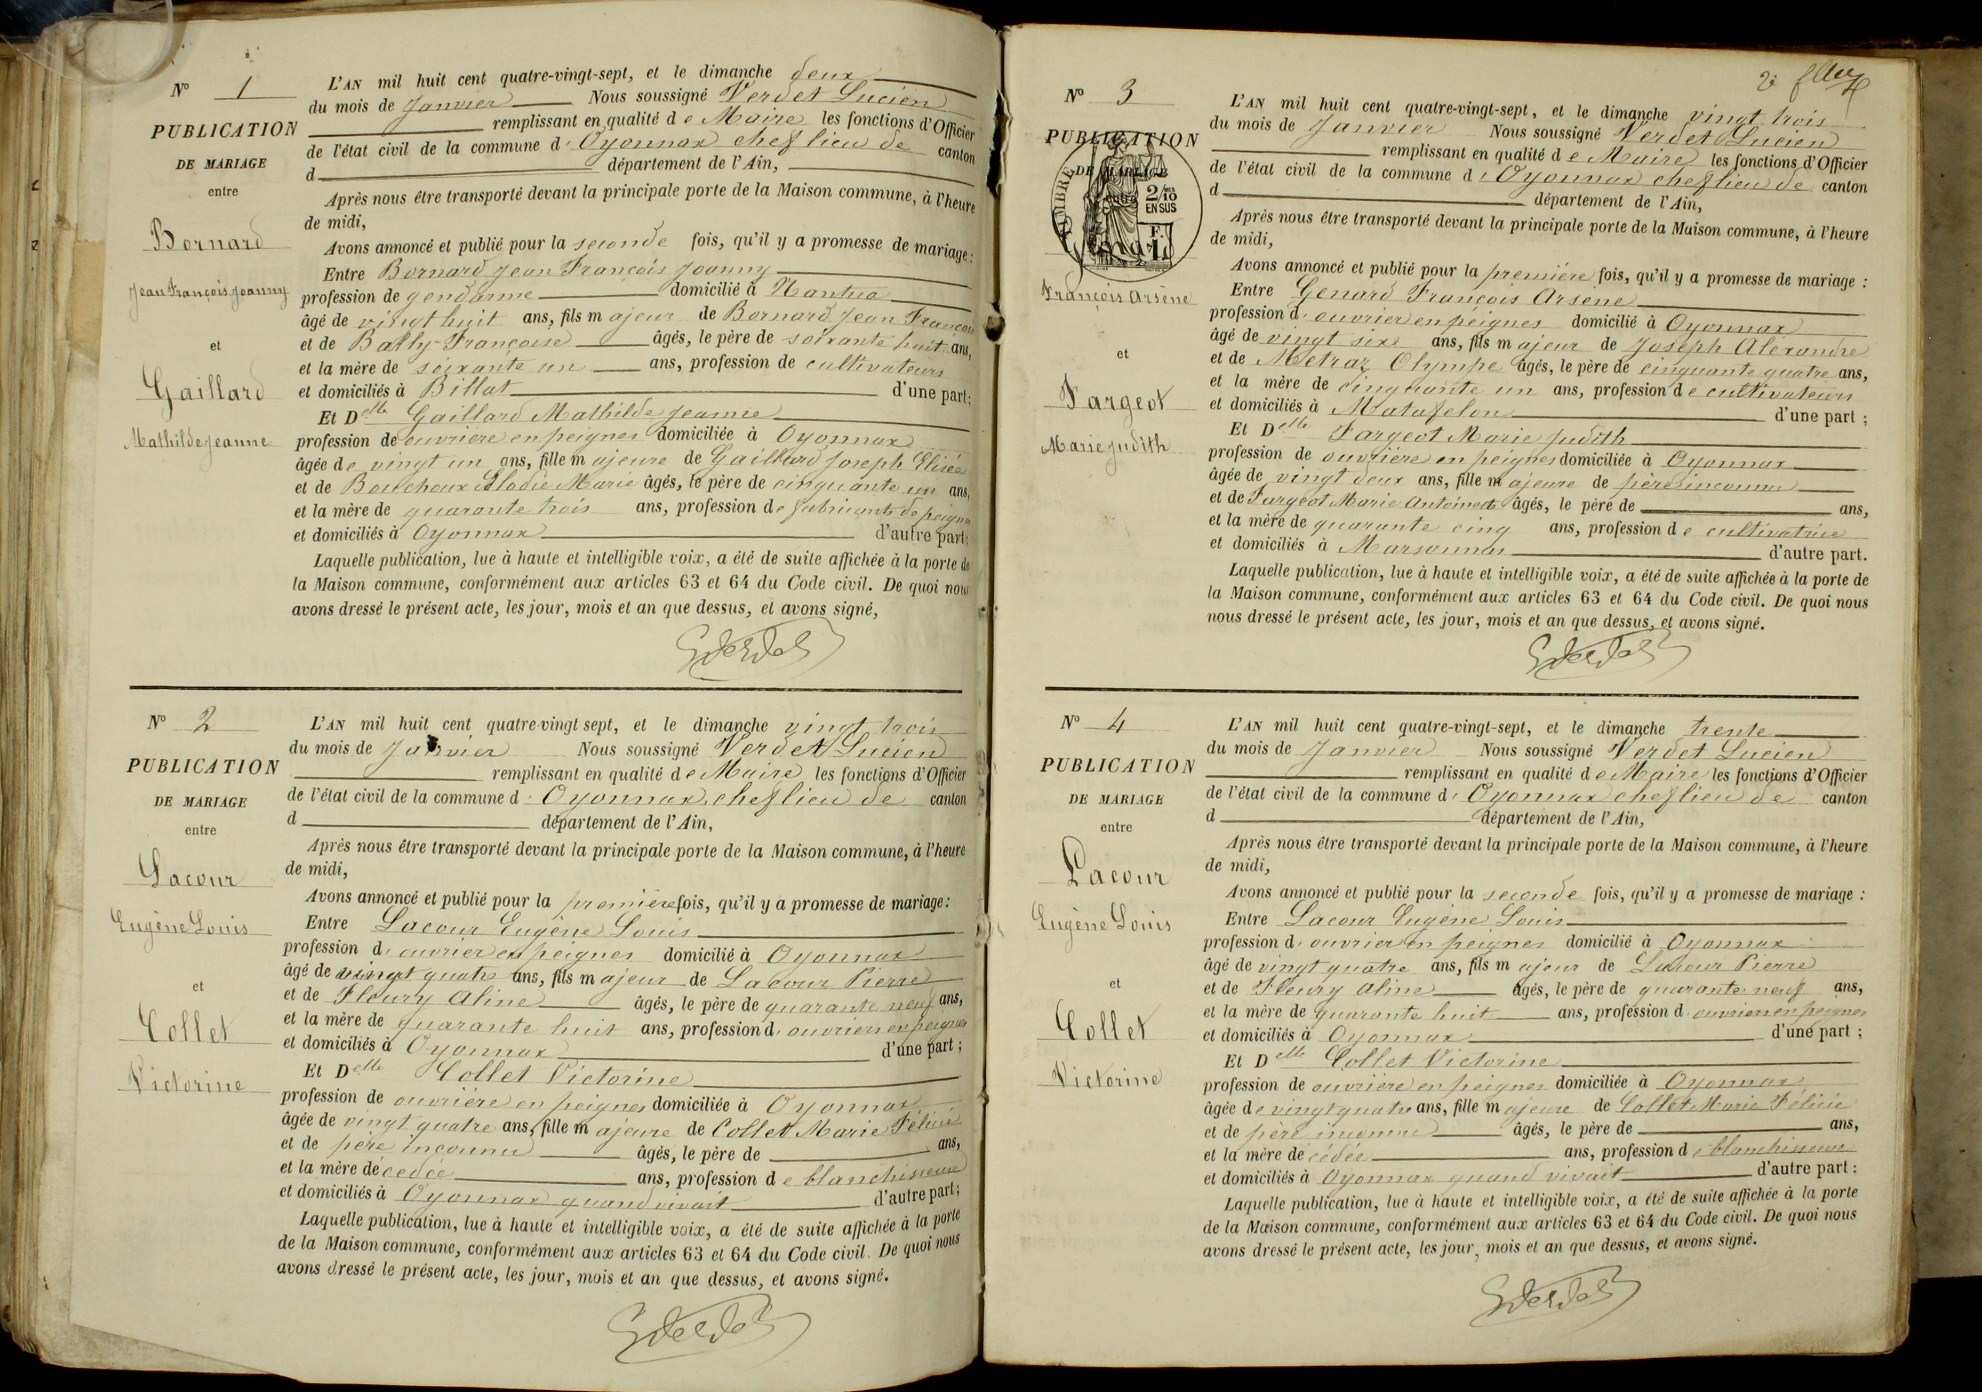 N° 1
PUBLICATION
DE MARIAGE
entre
Bornard
Jean François Joanny
et
Gaillard
Mathilde Jeanne
L'AN mil huit cent quatre-vingt-sept, et le dimanche deux
du mois de Janvier Nous soussigné Verdet Lucien
remplissant en qualité de Maire les fonctions d'Officier
de l'état civil de la commune d'Oyonnax chef lieu de canton
d département de l'Ain,
Après nous être transporté devant la principale porte de la Maison commune, à l'heure
de midi,
Avons annoncé et publié pour la seconde fois, qu'il y a promesse de mariage :
Entre Bornard Jean François Joanny
profession de gendarme domicilié à Nantua
âgé de vingt huit ans, fils majeur de Bornard Jean François
et de Bailly Françoise âgés, le père de soixante huit ans,
et la mère de soixante un ans, profession de cultivateurs
et domiciliés à Billat d'une part ;
Et Delle Gaillard Mathilde Jeanne
profession de ouvrière en peignes domiciliée à Oyonnax
âgée de vingt un ans, fille majeure de Gaillard Joseph Elisée
et de Bouchoux Elodie Marie âgés, le père de cinquante un ans,
et la mère de quarante trois ans, profession de fabricants de peignes
et domiciliés à Oyonnax d'autre part ;
Laquelle publication, lue à haute et intelligible voix, a été de suite affichée à la porte de
la Maison commune, conformément aux articles 63 et 64 du Code civil. De quoi nous
avons dressé le présent acte, les jour, mois et an que dessus, et avons signé,
N° 2
PUBLICATION
DE MARIAGE
entre
Lacour
Eugène Louis
et
Collet
Victorine
L'AN mil huit cent quatre-vingt sept, et le dimanche vingt trois
du mois de Janvier Nous soussigné Verdet Lucien
remplissant en qualité de Maire les fonctions d'Officier
de l'état civil de la commune d'Oyonnax chef lieu de canton
d département de l'Ain,
Après nous être transporté devant la principale porte de la Maison commune, à l'heure
de midi,
Avons annoncé et publié pour la première fois, qu'il y a promesse de mariage :
Entre Lacour Eugène Louis
profession d'ouvrier en peignes domicilié à Oyonnax
âgé de vingt quatre ans, fils majeur de Lacour Pierre
et de Fleury Aline âgés, le père de quarante neuf ans,
et la mère de quarante huit ans, profession d'ouvriers en peignes
et domiciliés à Oyonnax d'une part ;
Et Delle Collet Victorine
profession de ouvrière en peignes domiciliée à Oyonnax
âgée de vingt quatre ans, fille majeure de Collet Marie Félicie
et de père inconnu âgés, le père de ans,
et la mère décedée ans, profession de blanchisseuse
et domiciliés à Oyonnax quand vivait d'autre part ;
Laquelle publication, lue à haute et intelligible voix, a été de suite affichée à la porte
de la Maison commune, conformément aux articles 63 et 64 du Code civil. De quoi nous
avons dressé le présent acte, les jour, mois et an que dessus, et avons signé.
N° 3
PUBLICATION
DE MARIAGE
entre
TIMBRE
2/10
EN SUS
François Arsène
et
Fargeot
Marie Judith
L'AN mil huit cent quatre-vingt-sept, et le dimanche vingt trois
du mois de Janvier Nous soussigné Verdet Lucien
remplissant en qualité de Maire les fonctions d'Officier
de l'état civil de la commune d'Oyonnax chef lieu de canton
d département de l'Ain,
Après nous être transporté devant la principale porte de la Maison commune, à l'heure
de midi,
Avons annoncé et publié pour la première fois, qu'il y a promesse de mariage :
Entre Genard François Arsene
profession d'ouvrier en peignes domicilié à Oyonnax
âgé de vingt six ans, fils majeur de Joseph Alexandre
et de Metraz Olympe âgés, le père de cinquante quatre ans,
et la mère de cinquante un ans, profession de cultivateurs
et domiciliés à Matafelon d'une part ;
Et Delle Fargeot Marie Judith
profession de ouvrière en peignes domiciliée à Oyonnax
âgée de vingt deux ans, fille majeure de père inconnu
et de Fargeot Marie Antoinette âgés, le père de ans,
et la mère de quarante cinq ans, profession de cultivatrice
et domiciliés à Marsonnas d'autre part.
Laquelle publication, lue à haute et intelligible voix, a été de suite affichée à la porte de
la Maison commune, conformément aux articles 63 et 64 du Code civil. De quoi nous
nous dressé le présent acte, les jour, mois et an que dessus, et avons signé.
N° 4
PUBLICATION
DE MARIAGE
entre
Lacour
Eugène Louis
et
Collet
Victorine
L'AN mil huit cent quatre-vingt-sept, et le dimanche trente
du mois de Janvier Nous soussigné Verdet Lucien
remplissant en qualité de Maire les fonctions d'Officier
de l'état civil de la commune d'Oyonnax chef lieu de canton
d département de l'Ain,
Après nous être transporté devant la principale porte de la Maison commune, à l'heure
de midi,
Avons annoncé et publié pour la seconde fois, qu'il y a promesse de mariage :
Entre Lacour Eugène Louis
profession d'ouvrier en peignes domicilié à Oyonnax
âgé de vingt quatre ans, fils majeur de Lacour Pierre
et de Fleury Aline âgés, le père de quarante neuf ans,
et la mère de quarante huit ans, profession d'ouvriers en peignes
et domiciliés à Oyonnax d'une part ;
Et Delle Collet Victorine
profession de ouvrière en peignes domiciliée à Oyonnax
âgée de vingt quatre ans, fille majeure de Collet Marie Félicie
et de père inconnu âgés, le père de ans,
et la mère décédée ans, profession de blanchisseuse
et domiciliés à Oyonnax quand vivait d'autre part :
Laquelle publication, lue à haute et intelligible voix, a été de suite affichée à la porte
de la Maison commune, conformément aux articles 63 et 64 du Code civil. De quoi nous
avons dressé le présent acte, les jour, mois et an que dessus, et avons signé.